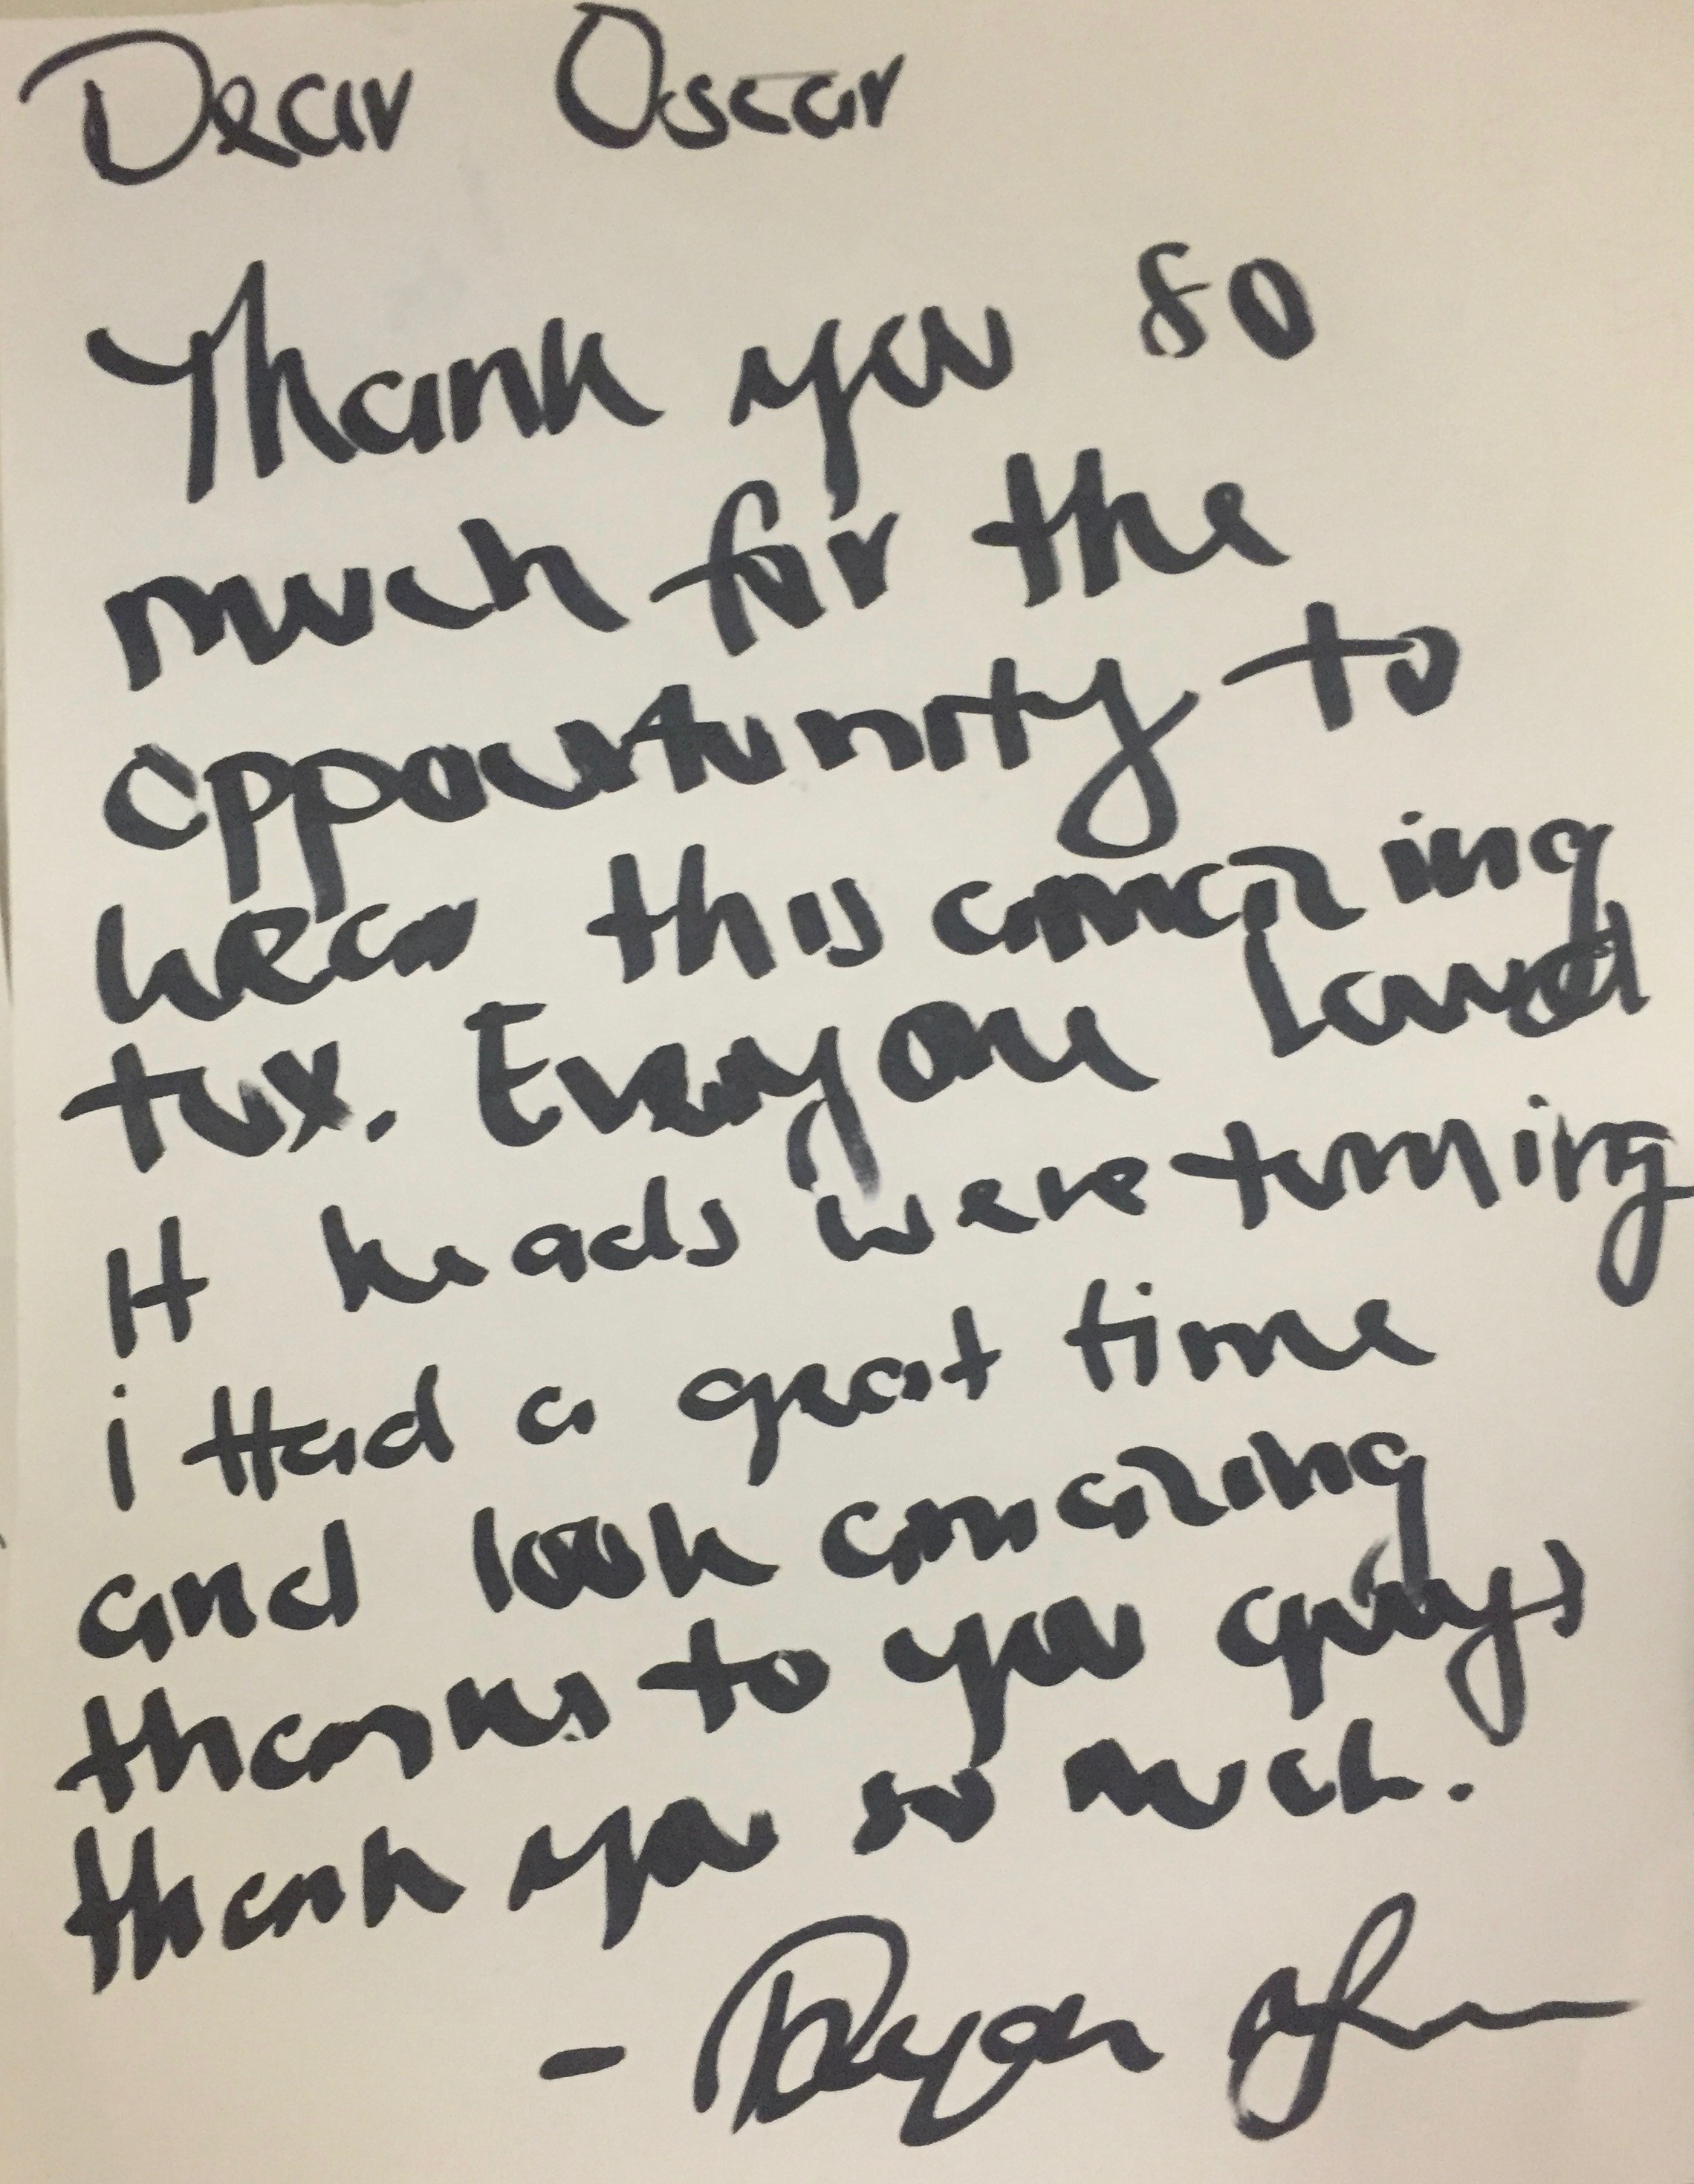 Dear Oscar
Thank you so
much for the
oppourtunity to
wear this amazing
tux. Everyone loved
it heads were turning
i Had a great time
and look amazing
thanks to you guys
thank you so much.
- Ryan